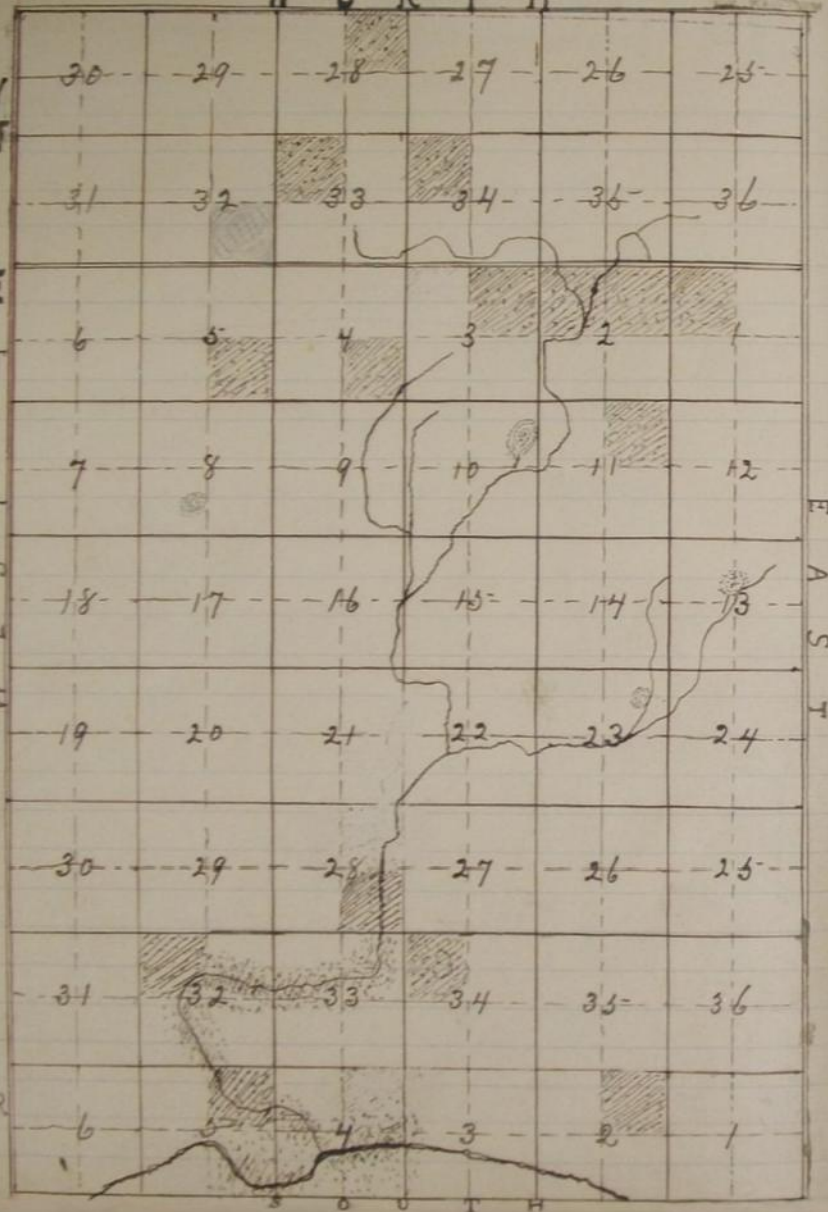 NORTH
30 29 28 27 26 25
31 32 33 34 35 36
6 5 4 3 2 1
7 8 9 10 11 12
18 17 16 15 14 13
19 20 21 22 23 24
30 29 28 27 26 25
31 32 33 34 35 36
6 5 4 3 2 1
EAST
SOUTH